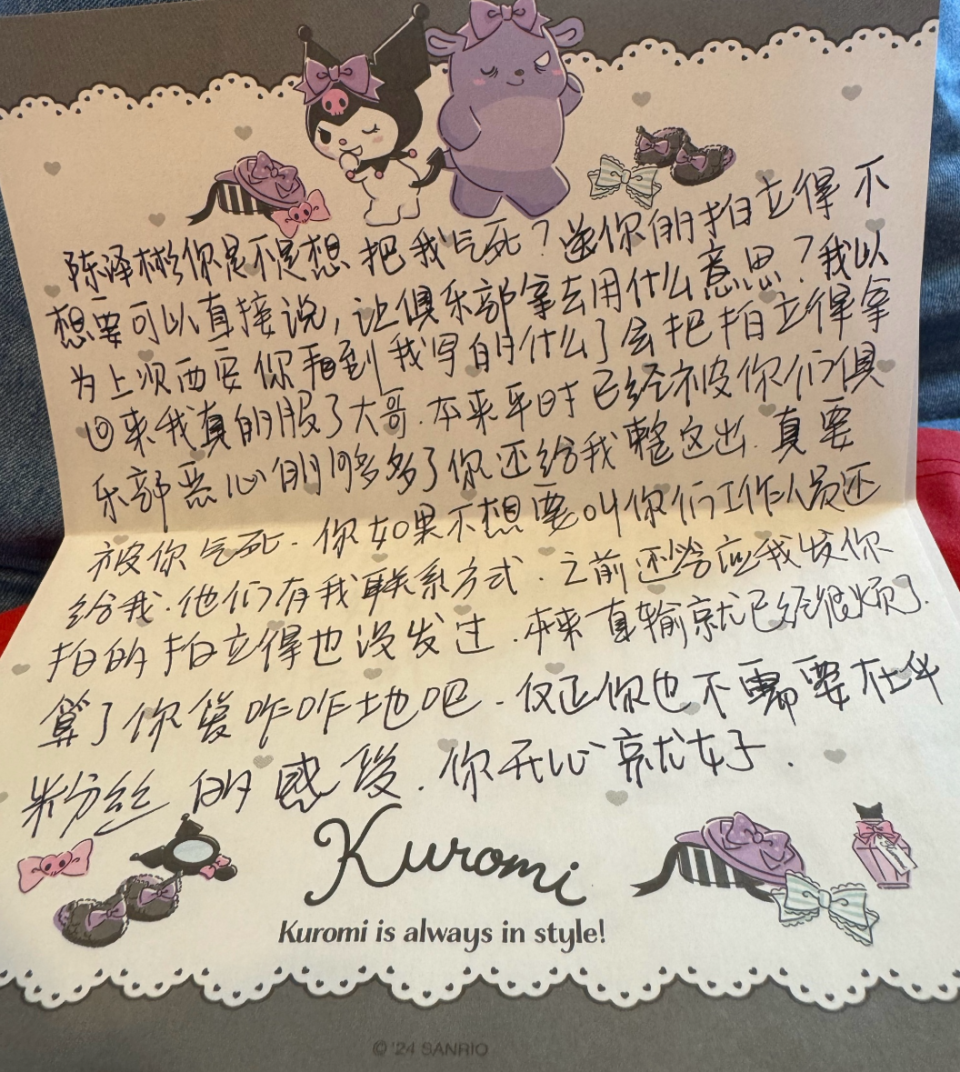 陈泽彬你是不是想把我气死？送你的拍立得不
想要可以直接说，让俱乐部拿去用什么意思？我以
为上次西安你看到我写的什么了会把拍立得拿
回来我真的服了大哥.本来平时已经被你们俱
乐部恶心的够多了你还给我整这出.真要
被你气死.你如果不想要叫你们工作人员还
给我.他们有我联系方式.之前还答应我发你
拍的拍立得也没发过.本来直输就已经很烦了.
算了你爱咋咋地吧.反正你也不需要在乎
粉丝的感受.你开心就好.
Kuromi
Kuromi is always in style!
© '24 SANRIO